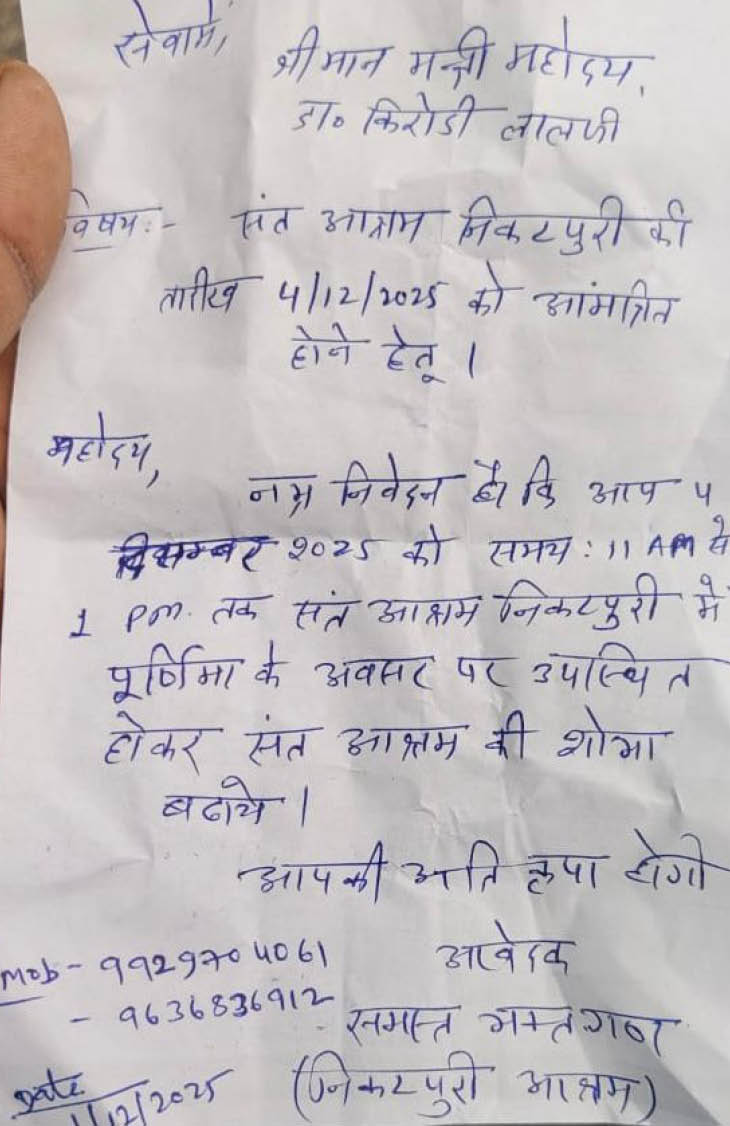 सेवामे,
श्री मान मन्त्री महोदय,
डा० किरोडी लालजी
विषय:- संत आश्रम निकटपुरी की
तारीख 4/12/2025 को आंमत्रित
होने हेतू।
महोदय,
नम्र निवेदन है कि आप 4
दिसम्बर 2025 को समय: 11 AM से
1 Pm. तक संत आश्रम निकटपुरी मे
पूर्णिमा के अवसर पर उपस्थित
होकर संत आश्रम की शोभा
बढाये।
आपकी अति कृपा होगी
आवेदक
Mob- 9929704061
- 9636836912
समस्त भक्तगण
(निकटपुरी आश्रम)
Date
/12/2025